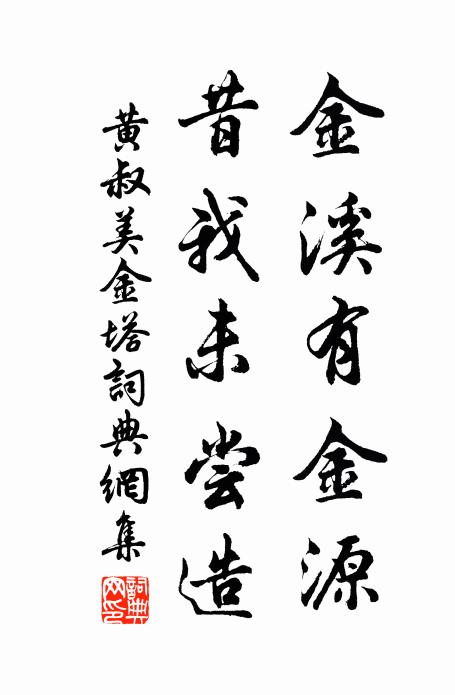 金溪有金源
昔我未尝造
黄叔美金塔詞典網集
詞典
网印